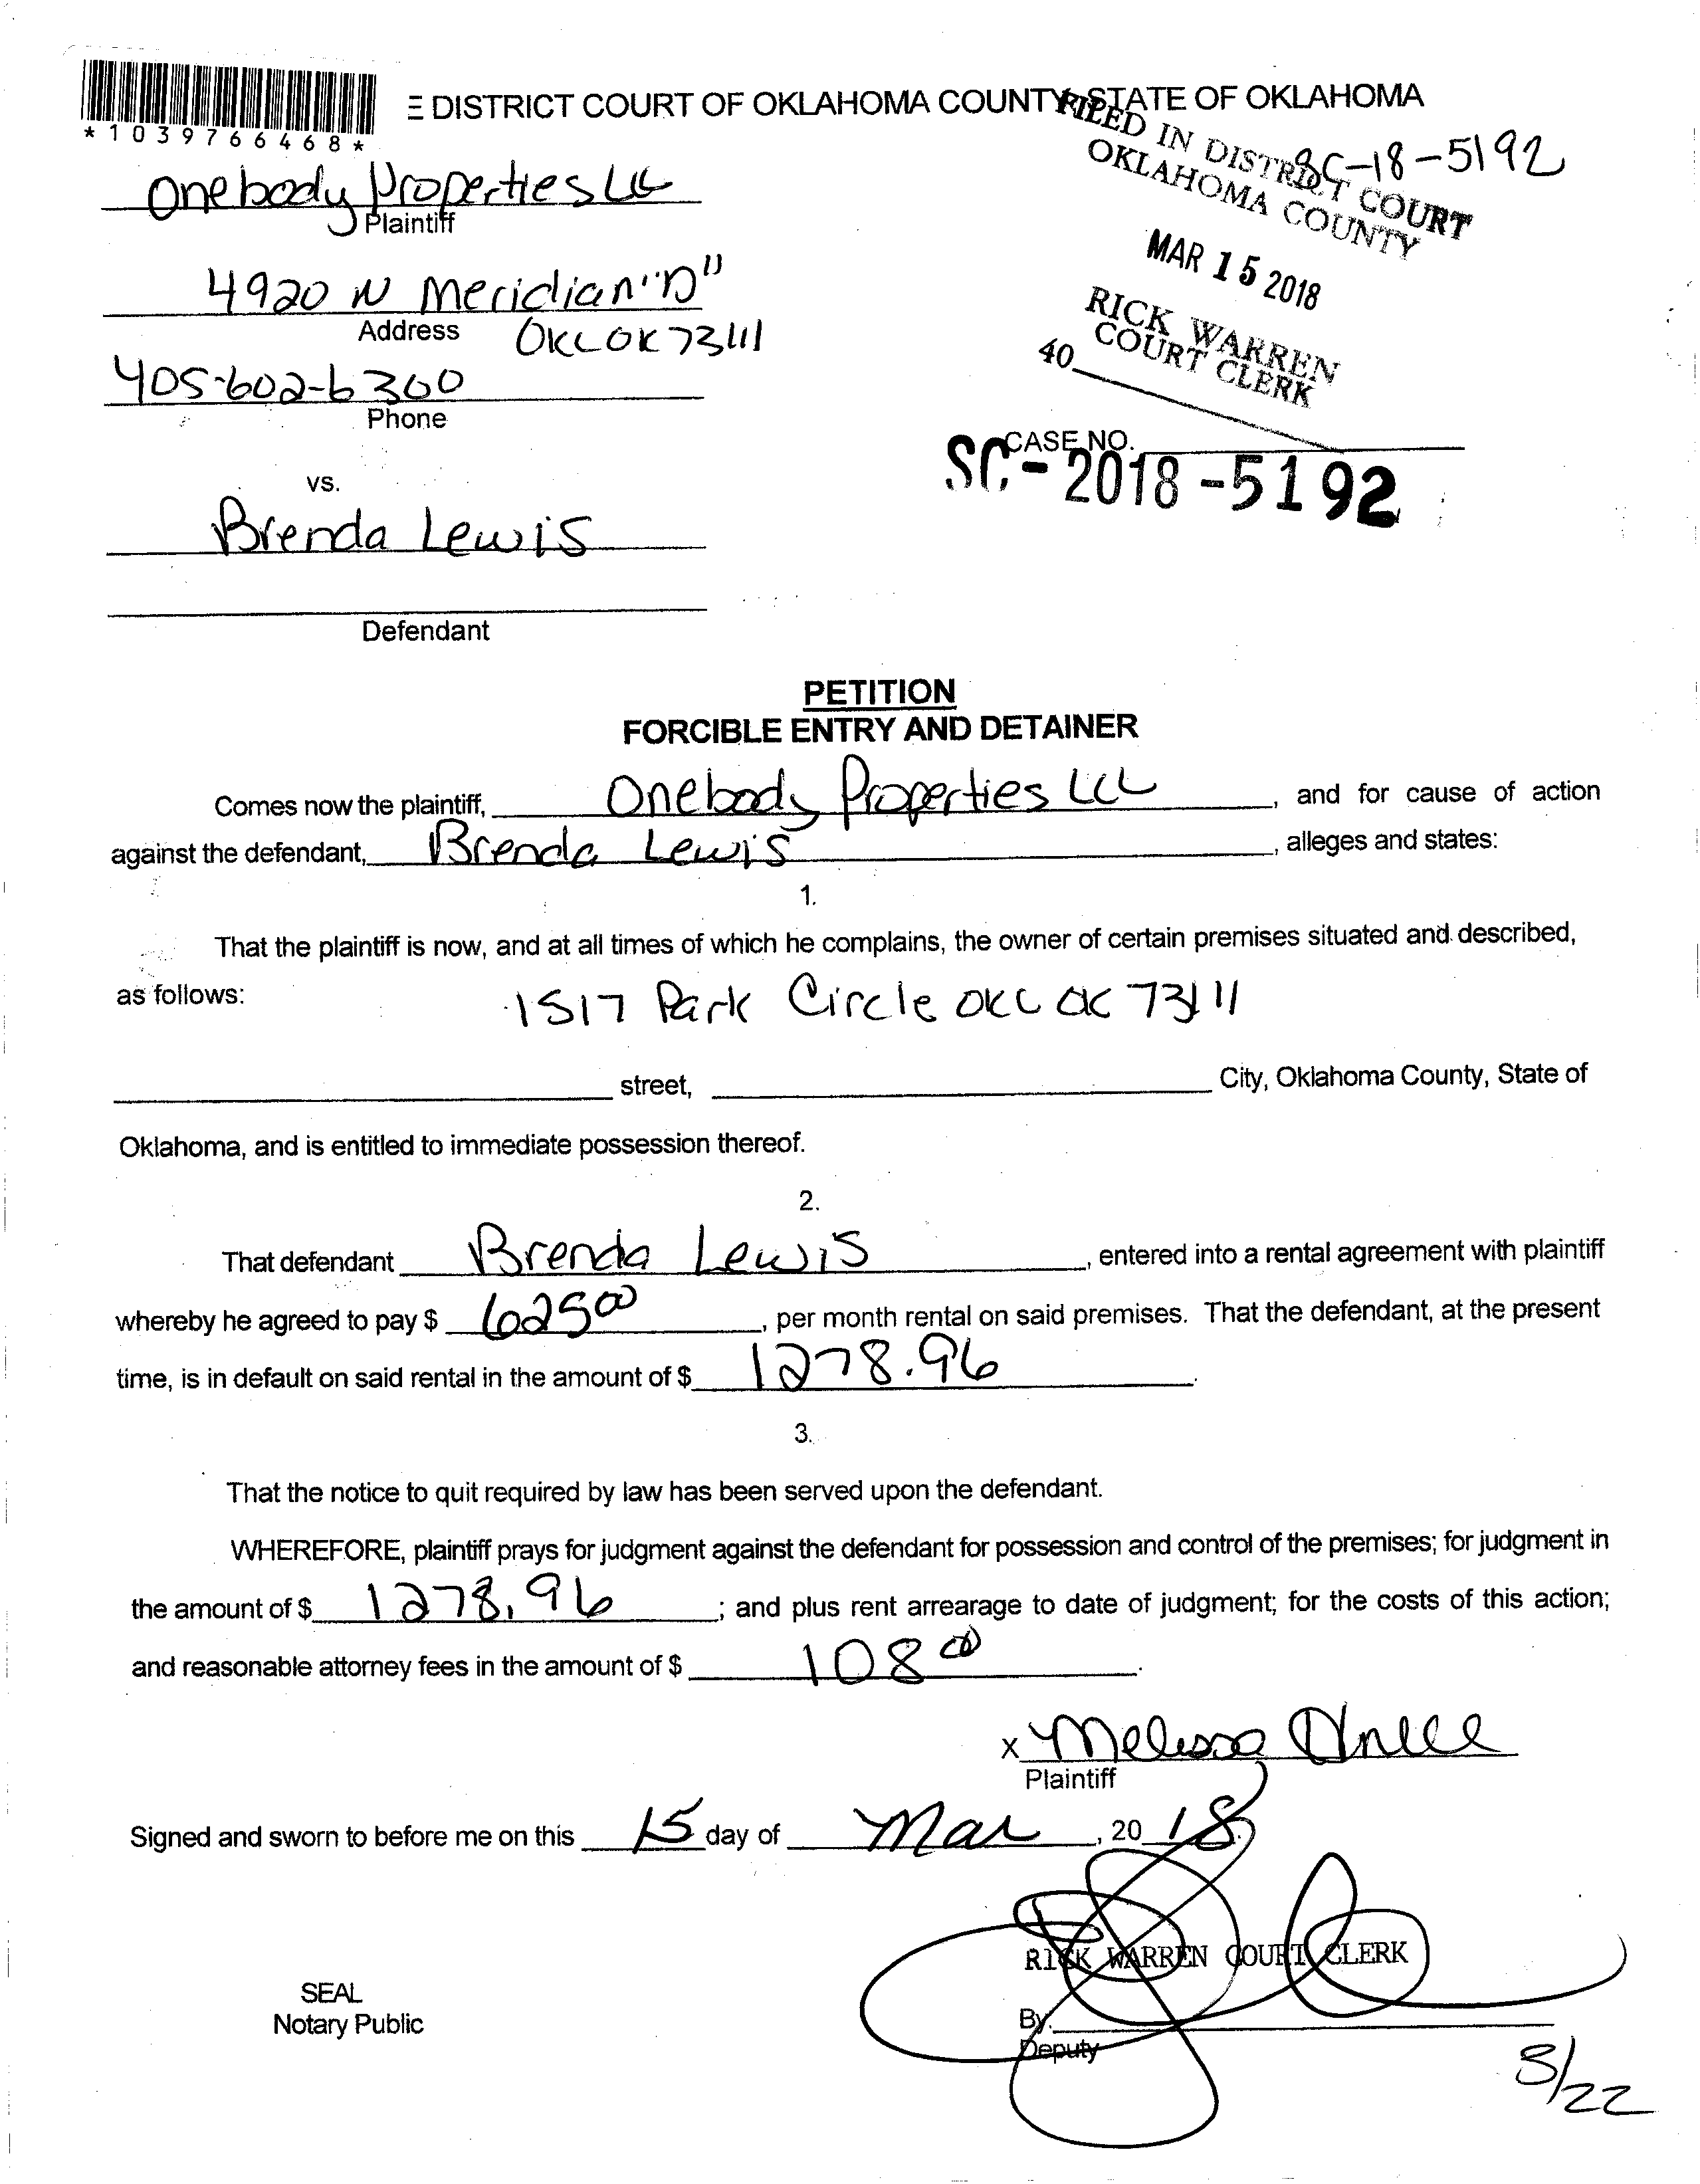 E DISTRICT COURT OF OKLAHOMA COUNTY, STATE OF OKLAHOMA
*1039766468*
FILED IN DISTRICT COURT
OKLAHOMA COUNTY
SC-18-5192
Onebody Properties LLC
Plaintiff
MAR 15 2018
4920 N Meridian "D"
Address OKC OK 73111
RICK WARREN
COURT CLERK
40
405-602-6300
Phone
CASE NO.
SC-2018-5192
vs.
Brenda Lewis
Defendant
PETITION
FORCIBLE ENTRY AND DETAINER
Comes now the plaintiff, Onebody Properties LLC, and for cause of action
against the defendant, Brenda Lewis, alleges and states:
1.
That the plaintiff is now, and at all times of which he complains, the owner of certain premises situated and described,
as follows: 1517 Park Circle OKC OK 73111
street, City, Oklahoma County, State of
Oklahoma, and is entitled to immediate possession thereof.
2.
That defendant Brenda Lewis, entered into a rental agreement with plaintiff
whereby he agreed to pay $ 625 00, per month rental on said premises. That the defendant, at the present
time, is in default on said rental in the amount of $ 1278.96.
3.
That the notice to quit required by law has been served upon the defendant.
WHEREFORE, plaintiff prays for judgment against the defendant for possession and control of the premises; for judgment in
the amount of $ 1278.96; and plus rent arrearage to date of judgment; for the costs of this action;
and reasonable attorney fees in the amount of $ 108 00.
x Melissa
Plaintiff
Signed and sworn to before me on this 15 day of Mar, 20 18.
RICK WARREN COURT CLERK
SEAL
Notary Public
By:
Deputy
3/22